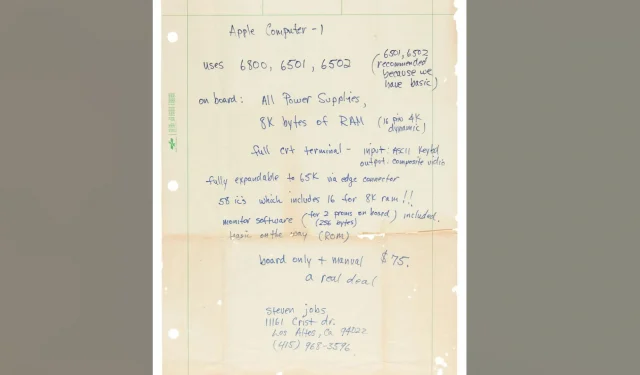 Apple Computer - 1
uses 6800, 6501, 6502
(6501, 6502
recommended
because we
have basic)
on board: All Power Supplies,
8K bytes of RAM (16 pin 4K
dynamic)
full crt terminal - input: ASCII Keybd
output: composite video
fully expandable to 65K via edge connector
58 ic's which includes 16 for 8K ram!!
monitor software (for 2 proms on board) included.
(256 bytes)
basic on the way (ROM)
board only + manual $75.
a real deal
steven jobs
11161 Crist dr.
Los Altos, Ca 94022
(415) 968-3596